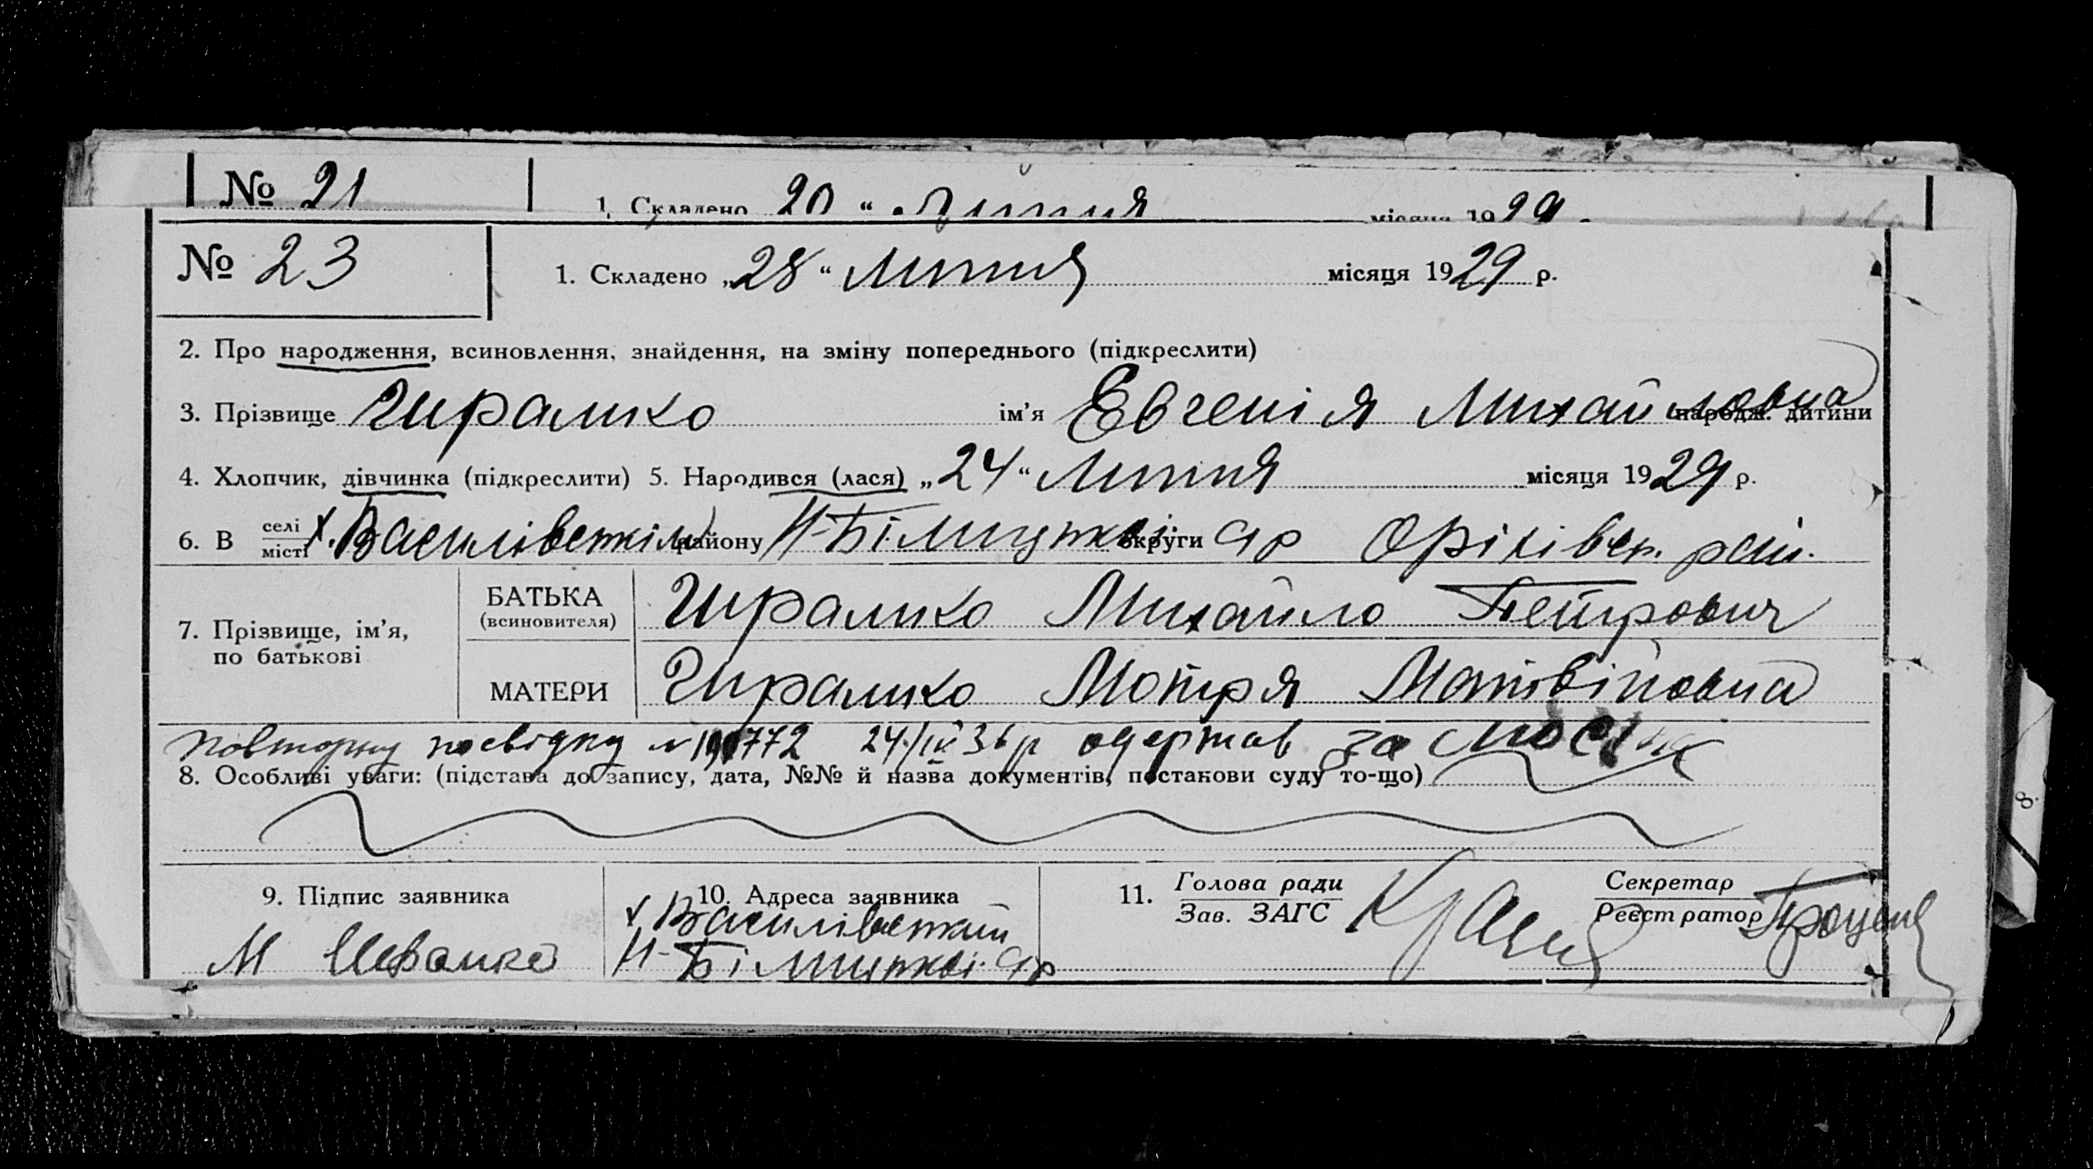 № 21
1. Складено 20 " липня місяця 1929
№ 23
1. Складено „28" липня місяця 1929 р.
2. Про народження, всиновлення, знайдення, на зміну попереднього (підкреслити)
3. Прізвище Гирамко ім'я Евгенія Михайловна народж. дитини
4. Хлопчик, дівчинка (підкреслити) 5. Народився (лася) „24" липня місяця 1929 р.
6. В селі місті х. району Н-Білицької округи с/р Оріхівськ. рай.
7. Прізвище, ім'я, по батькові
БАТЬКА (всиновителя) Гирамко Михайло Петрович
МАТЕРИ Гирамко Мотря Матвіїовна
повторну посвідку 24/IV 36 р одержав за
8. Особливі уваги: (підстава до запису, дата, №№ й назва документів, постакови суду то-що)
9. Підпис заявника
10. Адреса заявника
11. Голова ради Зав. ЗАГС
Секретар Реєстратор
М
х.
Н-Білицької с/р
8.